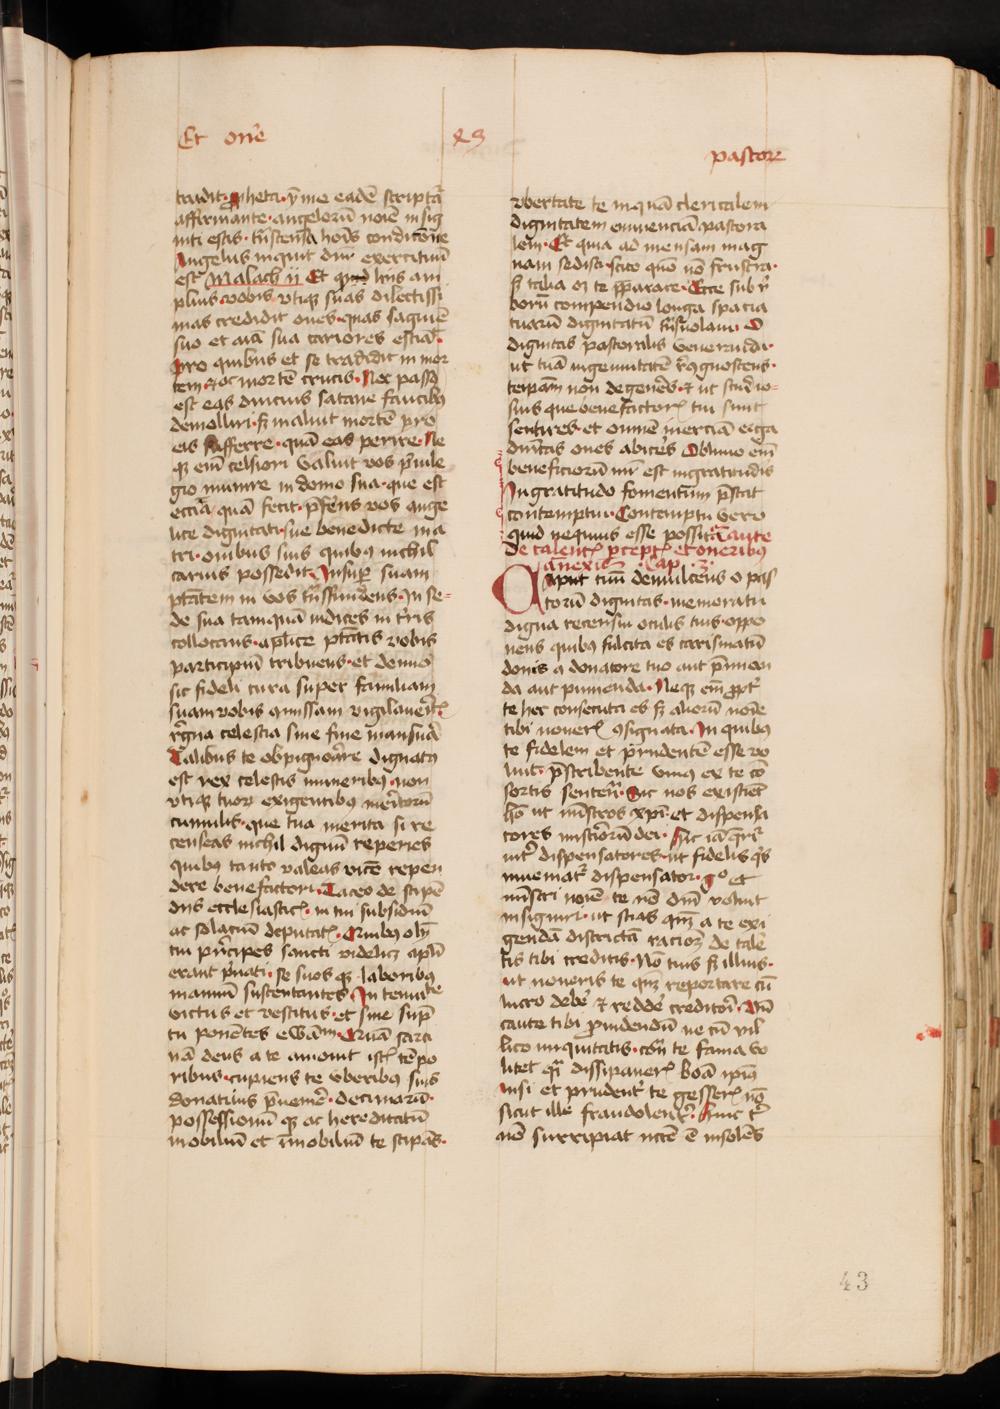 Et on̄e
43
pastore
tradit. ꝓheta. eadē scriptā
affirmante. angelorū noīe insig
niti estis. hoīs condicōne
Angelus inquit dn̄i exercituū
est Malach ij Et quid hijs am
plius. vobis vtiqꝫ suas dilectissi
mas credidit oues. quas saguīe
suo et aīa sua cariores estiāt.
pro quibus et se tradidit in mor
tem mortē crucis. Nec passꝰ
est eas diucius satane faucibꝰ
demolliri. sꝫ maluit mortē pro
eis afferre. quā eas perire. Ne
qꝫ em̄ celsiori valuit vos pͥuile
gio munire in domo sua. que est
eccīa quā fecit. p̄ferēs vos ange
lice dignitati. sue benedicte ma
tri. omībus suis quibꝰ nichil
carius possedit. Insuꝑ suam
ptātem in vos tͣnsfundens. In se-
de sua tamquā iudices in tr̄is
collocans. aplīce ptātis vobis
participiū tribuens. et demū
sic fideli cura super familiam
suam vobis cōmissam vigilauerītis
regna celestia sine fine mansura
Talibus te obpignorare dignatꝰ
est rex celestis muneribꝰ. non
vtiqꝫ tuoꝝ exigentibꝰ meritorū
cumulis. que tua merita si re
censeas nichil dignū reperies
quibꝰ tanto valeas vicē repen
dere benefactori. Taceo de stipē
dijs ecclesiasticis. in tui subsidiū
ac solaciū deputatis. Quibus olī
tui pͥncipes sancti videlicꝫ apłi
erant pͥuati. se suos qꝫ laboribꝰ
manuū sustentantes. In tenuitate
victus et vestitus. et sine supͥ
tu ponētes ewāⁱᵐ. Quā sarci
nā deus a te amouit istis tēpo
ribus. cupiens te vberibꝰ suis
donatiuis pͥuenire. decimarū.
possessionū qꝫ ac hereditatū
mobiliū et īmobiliū te stipās.
vbertate te inquā clericalem
dignitatem eminēciā pastora
lem. Et quia ad mensam mag
nam sedisti. scito quō nō frustra.
sꝫ talia oꝫ te p̄parare. Ecce sub ꝟ
borū compendio longa spacia
tuarū dignitatū tͥnsuolaui. O
dignitas pastoralis veneranda.
ut tuā ingenuitatē recognoscens.
teipam̄ non degeneres. et ut studio-
sius que benefactoris tui sunt
sentires. et omnē inerciā erga
dn̄icas oues abicies Obliuio em̄
beneficiorū mr̄ est ingratitudis
Ingratitudo fomentum p̄stat
contemptui. Contemptu vero
quid nequius esse possit. Caute
de talentis p̄ceptis et oneribꝰ
ānexis Cap. 3.
Caput tuū demulcens o pas
torū dignitas. memoratu
digna recensui oculis tuis. oppo
nens quibꝰ fulcita es carismatū
donis a donatore tuo aut p̄mian
da aut punienda. Neqꝫ em̄ ꝓpt̄
te hec consecuta es sꝫ aliorū noīe
tibi noueris cōsignata. In quibꝰ
te fidelem et prudentē esse vo
luit. p̄scribente vniꝰ ex te cō
sortis sentencia. Sic nos existiēt
hō ut mīstros xp̄i. et dispensa
tores misterīorū dei. Hic iā q̄rit̄
int̄ dispensatores. ut fidelis q̄s
inueniat̄ dispensator. gͦ et
mīstri noīe te nō dn̄m voluit
insigniri. ut scias qm̄ a te exi
gendā districtā racionem de talē
tis tibi creditis. Nō tuis sꝫ illius.
ut noueris te qm̄ reportare cū
lucro debē et reddē creditori. Vn̄
caute tibi ꝓuidendū ne cū vil
lico iniquitatis. corā te fama vo
litet qꝛ dissipaueris bona ip̄iꝰ
nisi et prudent̄ te gesseris nō
sicut ille fraudolent̄. Hinc t̄
nō surripiat mentē ē insolēs
43